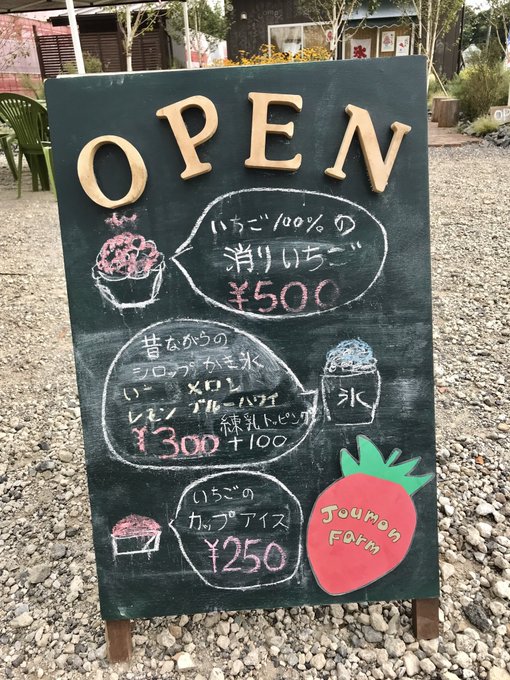 OPEN
いちご100%の
消りいちご
¥500
昔ながらの
シロップかき氷
メロン
レモン ブルーハワイ
¥300
練乳トッピング
+100
氷
いちごの
カップアイス
¥250
Joumon
Farm
氷